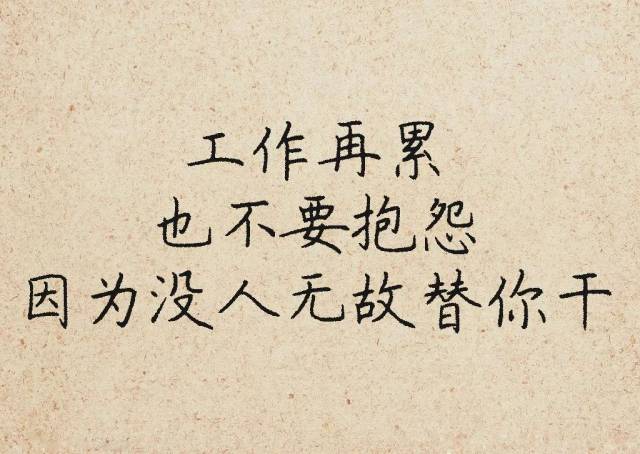 工作再累
也不要抱怨
因为没人无故替你干